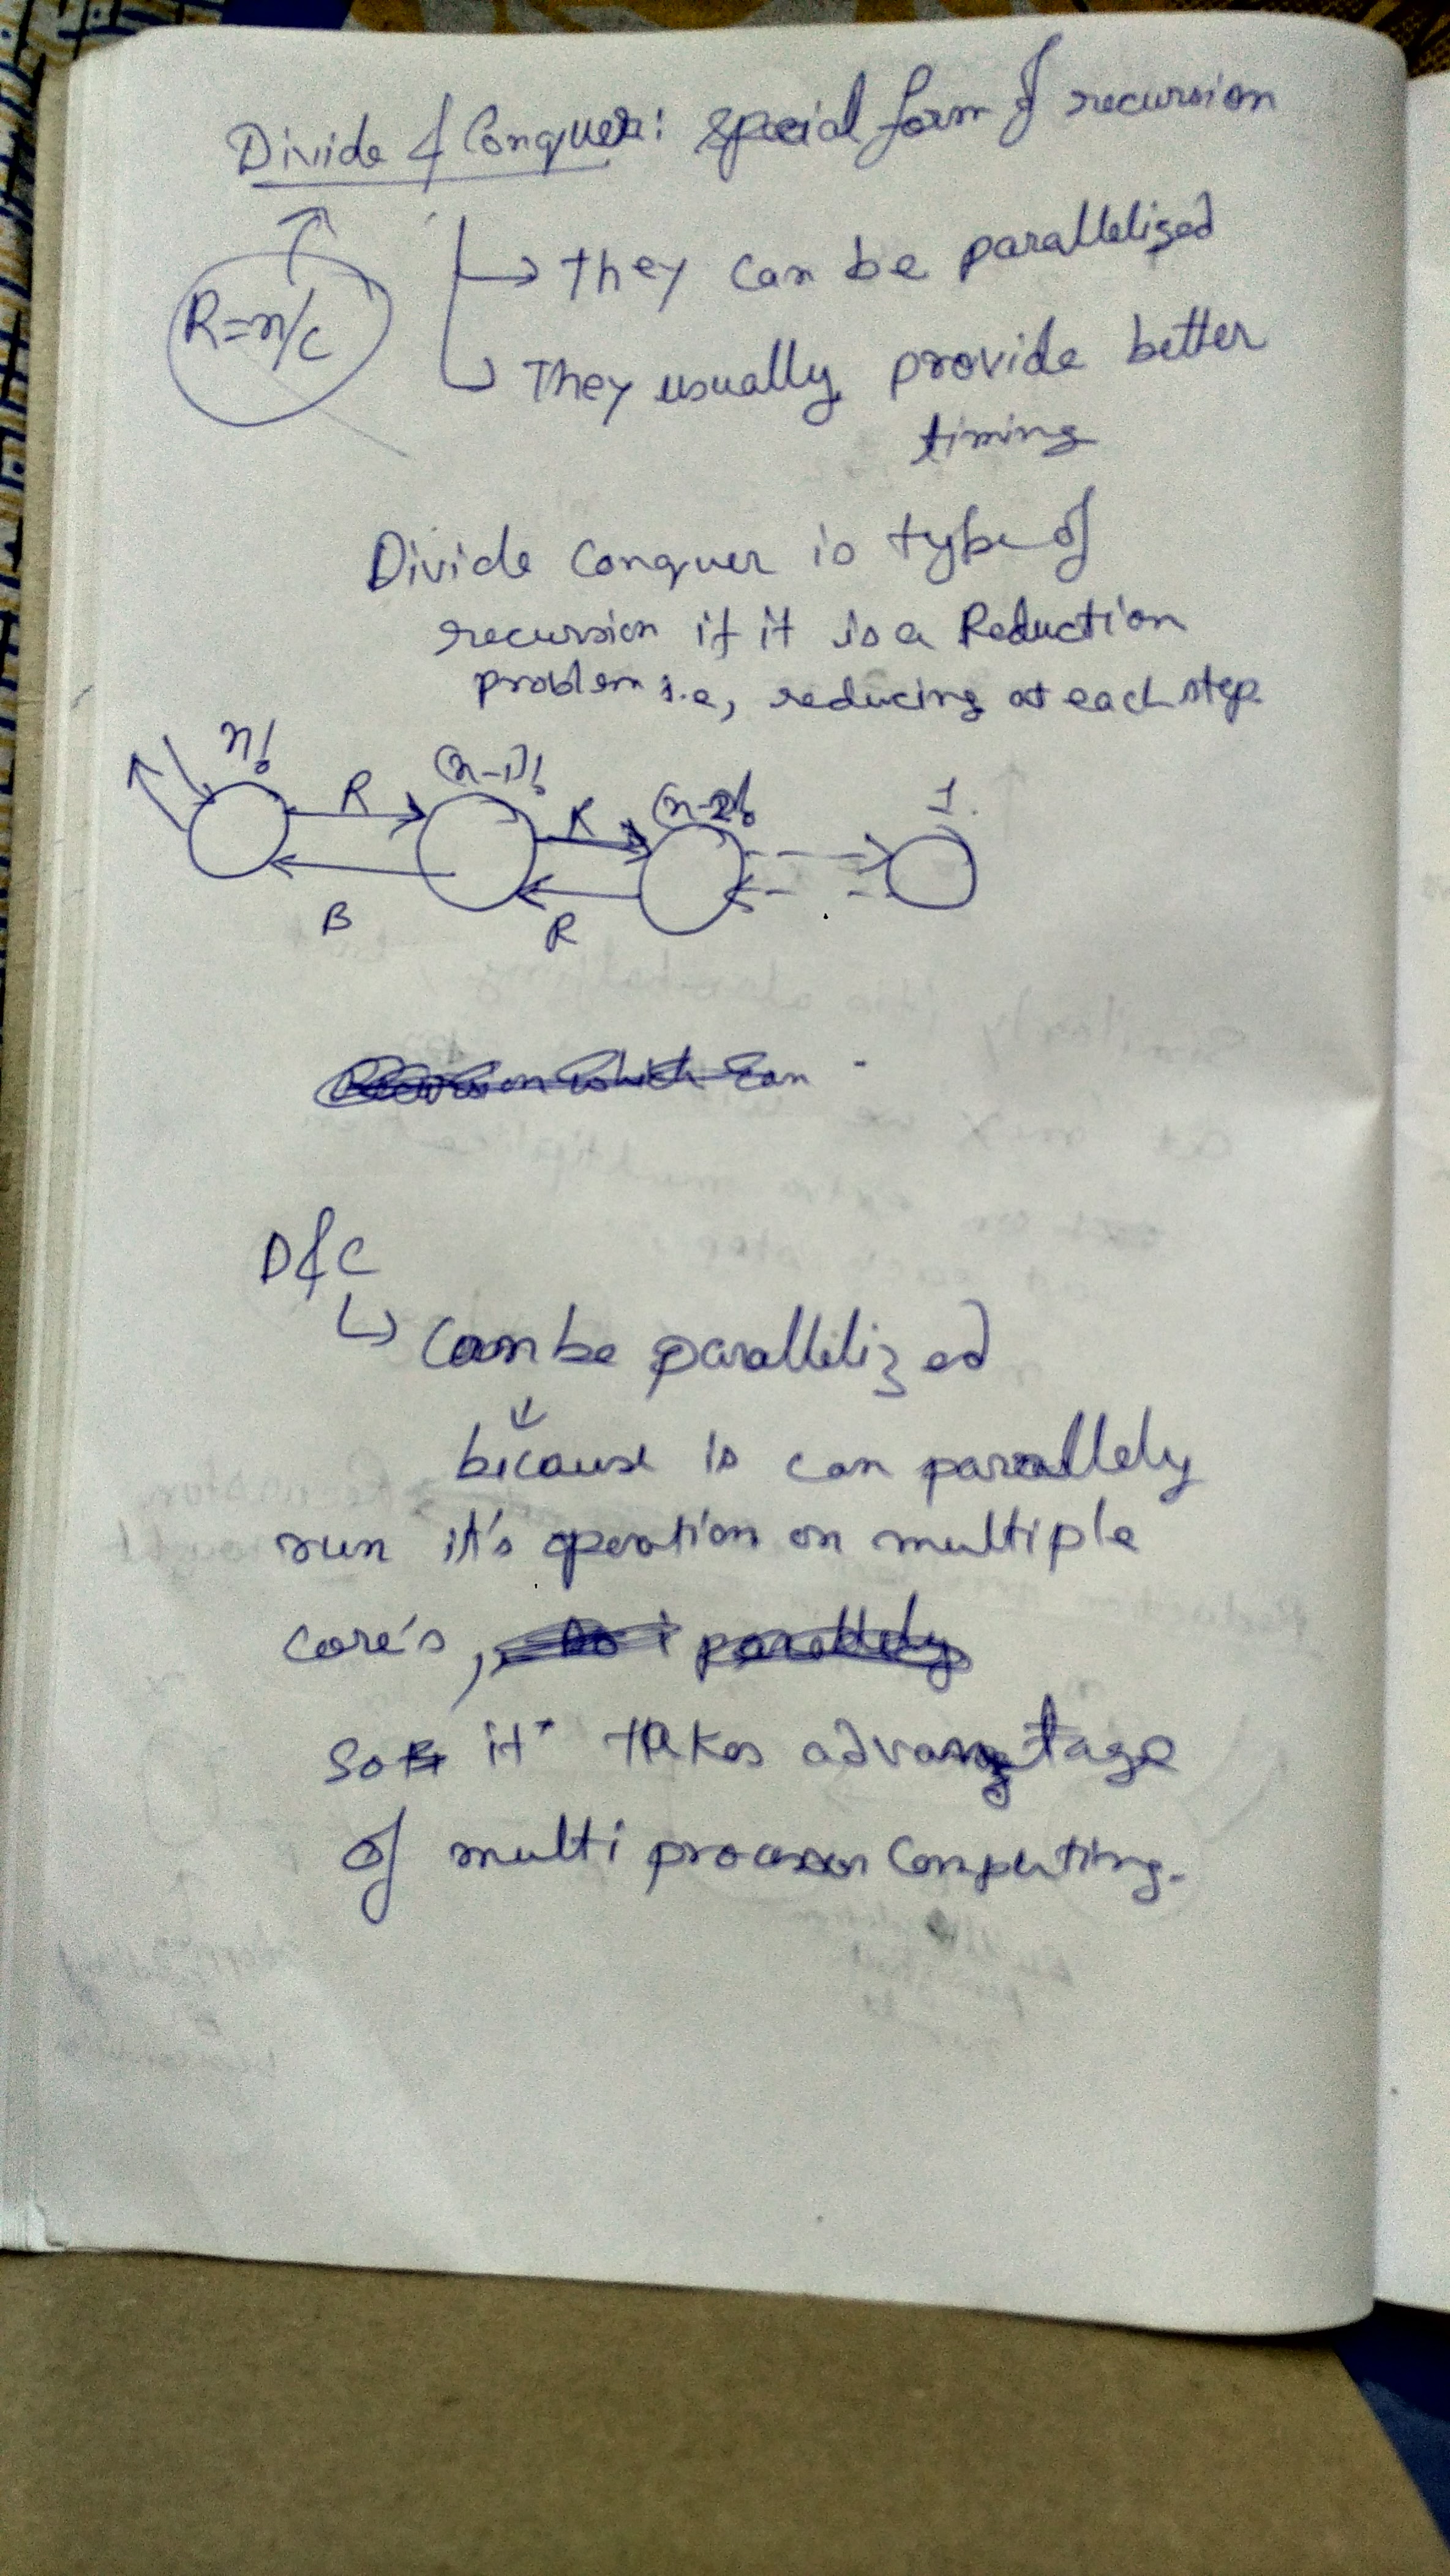 Divide & Conquer: special form of recursion
R=n/c
→ they can be parallelized
→ They usually provide better
timing
Divide Conquer is type of
recursion if it is a Reduction
problem i.e, reducing at each step
n! (n-1)! (n-2)! 1
R R
B R
D&C
↳ Can be parallilized
because is can parallely
run it's operation on multiple
core's,
so it takes advantage
of multi processor Computing.